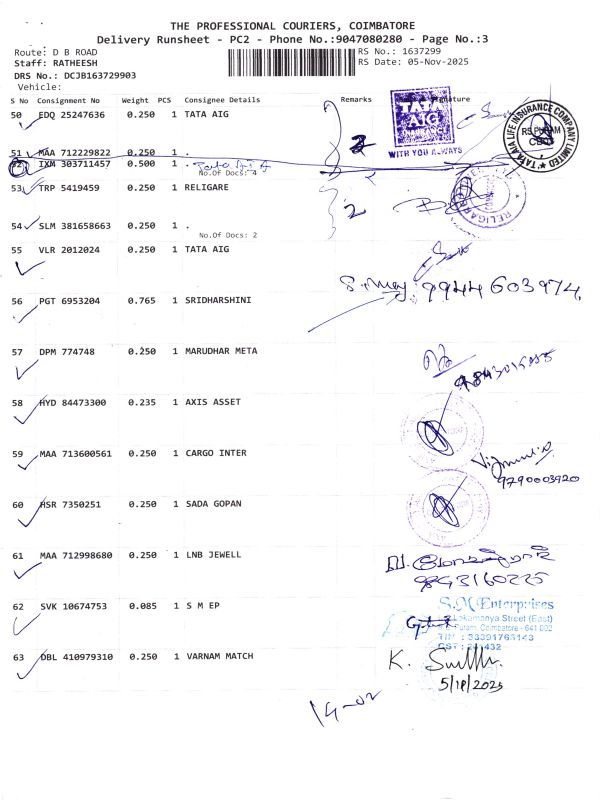 THE PROFESSIONAL COURIERS, COIMBATORE
Delivery Runsheet - PC2 - Phone No.:9047080280 - Page No.:3
Route: D B ROAD
RS No.: 1637299
Staff: RATHEESH
RS Date: 05-Nov-2025
DRS No.: DCJB163729903
Vehicle:
S No Consignment No Weight PCS Consignee Details Remarks Signature
50 EDQ 25247636 0.250 1 TATA AIG
2
TATA AIG
WITH YOU ALWAYS
TATA AIA LIFE INSURANCE COMPANY LIMITED
RS PURAM
51 MAA 712229822 0.250 1 .
52 IXM 303711457 0.500 1 . Tata AIG
No.Of Docs: 4
53 TRP 5419459 0.250 1 RELIGARE
2
54 SLM 381658663 0.250 1 .
No.Of Docs: 2
55 VLR 2012024 0.250 1 TATA AIG
9944603974
56 PGT 6953204 0.765 1 SRIDHARSHINI
57 DPM 774748 0.250 1 MARUDHAR META
58 HYD 84473300 0.235 1 AXIS ASSET
59 MAA 713600561 0.250 1 CARGO INTER
9790003920
60 HSR 7350251 0.250 1 SADA GOPAN
61 MAA 712998680 0.250 1 LNB JEWELL
9843160225
62 SVK 10674753 0.085 1 S M EP
S.M Enterprises
Lokamanya Street (East)
Puram, Coimbatore - 641 002
TIN : 33391765143
63 DBL 410979310 0.250 1 VARNAM MATCH
K.
5/11/2025
14-02